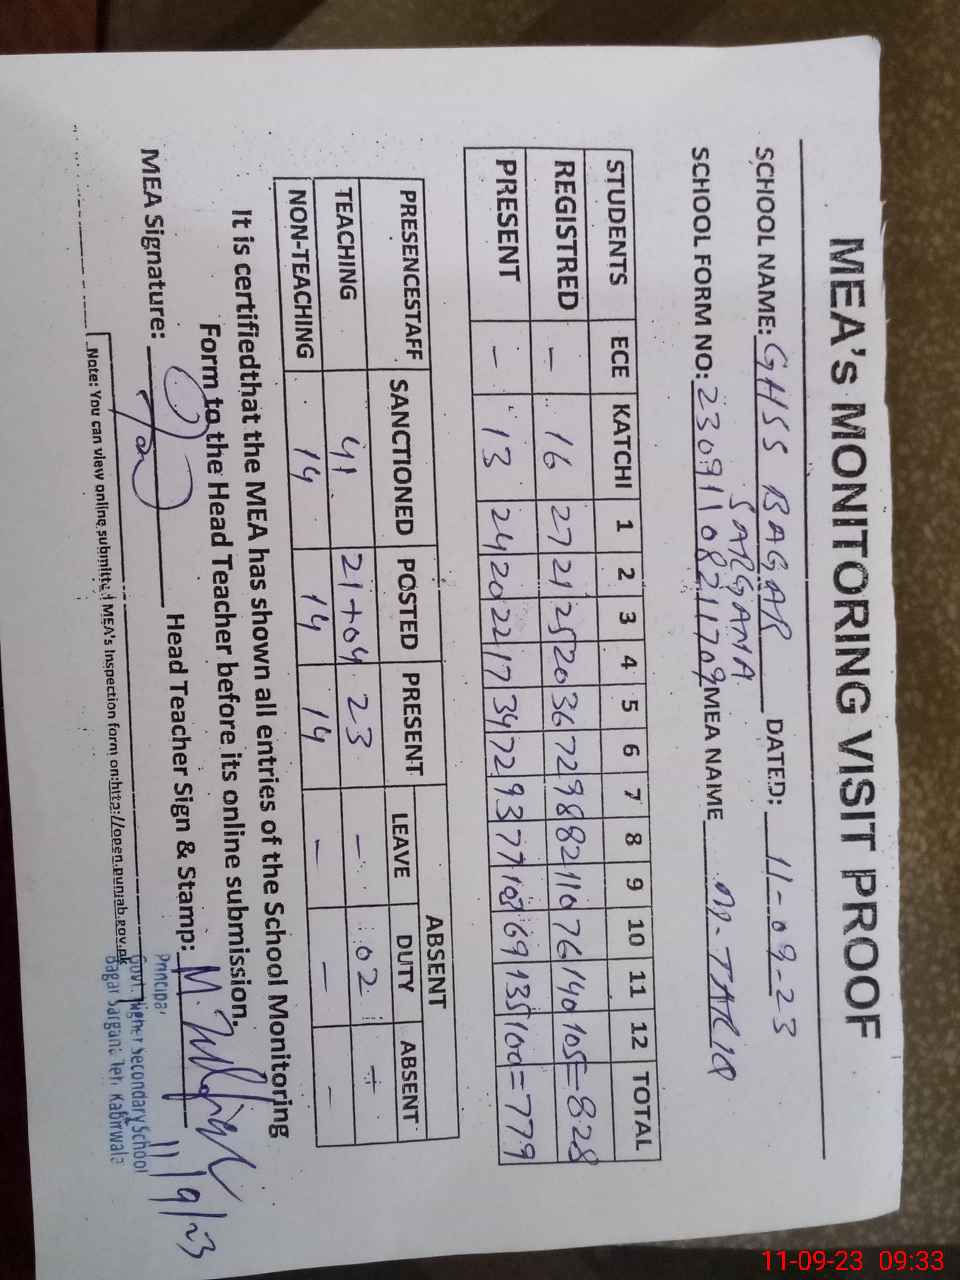 MEA's MONITORING VISIT PROOF
SCHOOL NAME: GHSS BAGAR SARGANA DATED: 11-09-23
SCHOOL FORM NO: 23091108211709 MEA NAME M. TARIQ
STUDENTS ECE KATCHI 1 2 3 4 5 6 7 8 9 10 11 12 TOTAL
REGISTRED - 16 27 21 25 20 36 72 98 82 110 76 140 105 = 828
PRESENT - 13 24 20 22 17 34 72 93 77 108 69 135 100 = 779
PRESENCESTAFF SANCTIONED POSTED PRESENT ABSENT
LEAVE DUTY ABSENT
TEACHING 41 21+04 23 - 02 -
NON-TEACHING 14 14 14 - - -
It is certifiedthat the MEA has shown all entries of the School Monitoring
Form to the Head Teacher before its online submission.
MEA Signature: Head Teacher Sign & Stamp:
11/9/23
Principal
Govt. Higher Secondary School
Bagar Sargana Teh Kabirwala
Note: You can view online submitted MEA's Inspection form on:http://open.punjab.gov.pk
11-09-23 09:33